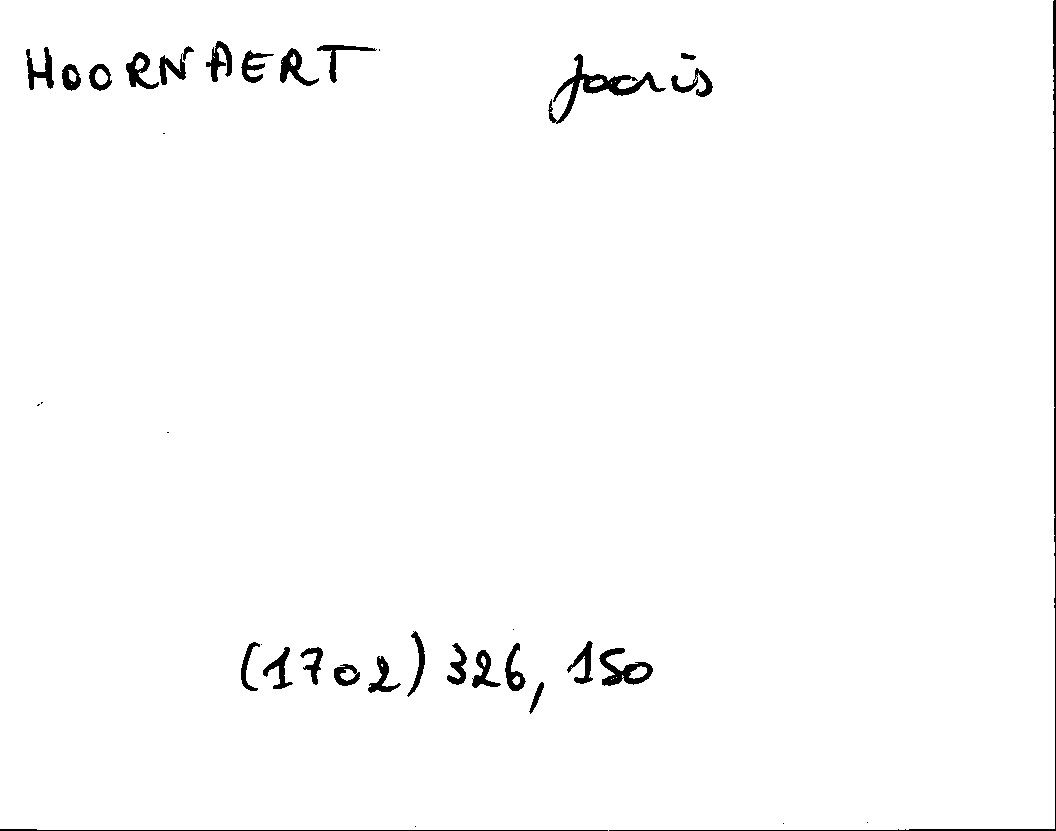 HOORNAERT Jooris
(1702) 326, 150